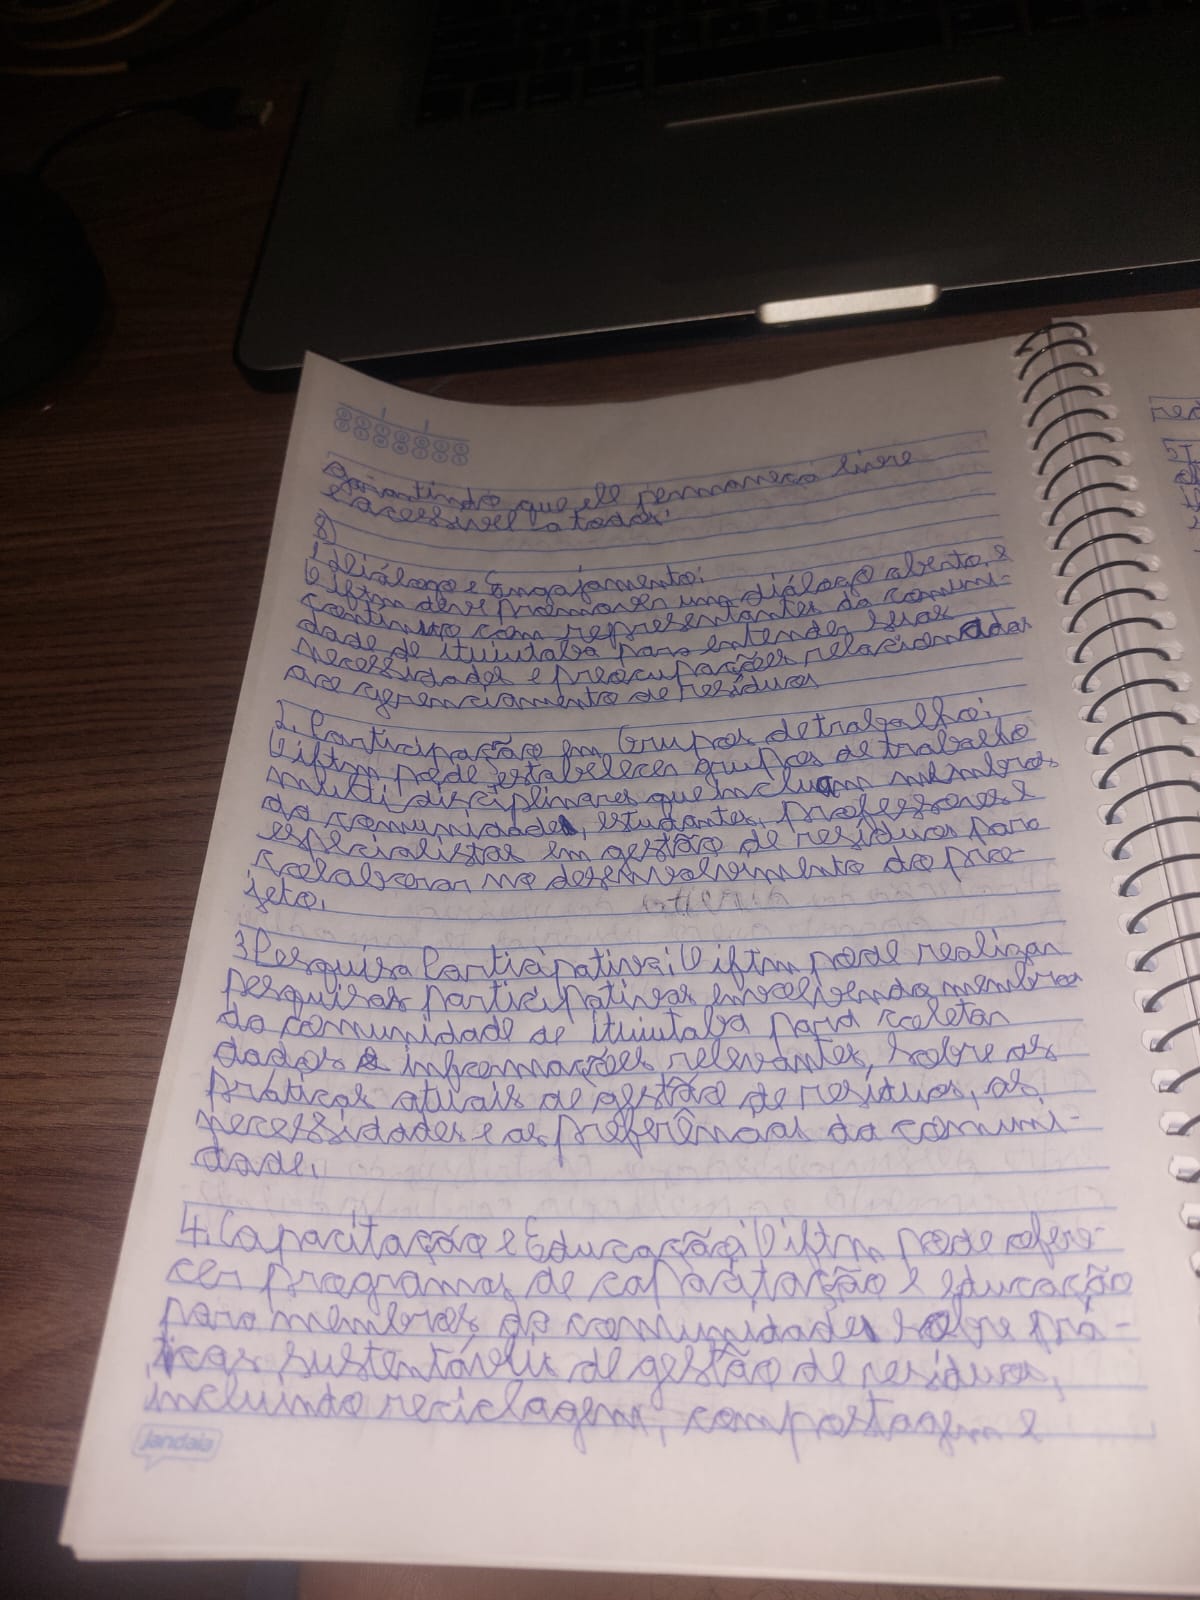 Garantindo que ele permaneça livre
e acessivel a todos.
8)
1. Diálogo e Engajamento:
O iftm deve promover um diálogo aberto e
contínuo com representantes da comuni-
dade de ituiutaba para entender suas
necessidades e preocupações relacionadas
ao gerenciamento de resíduos
2. Participação em Grupos de trabalho:
O iftm pode estabelecer grupos de trabalho
multidisciplinares que incluam membros
da comunidade, estudantes, professores e
especialistas em gestão de resíduos para
colaborar no desenvolvimento do pro-
jeto.
3 Pesquisa Participativa: O iftm pode realizar
pesquisas participativas envolvendo membros
da comunidade de ituiutaba para coletar
dados e informações relevantes, sobre as
práticas atuais de gestão de resíduos, as
necessidades e as preferências da comuni-
dade.
4. Capacitação e Educação: O iftm pode ofere-
cer programas de capacitação e educação
para membros da comunidade sobre prá-
ticas sustentáveis de gestão de resíduos,
incluindo reciclagem, compostagem e
jandaia